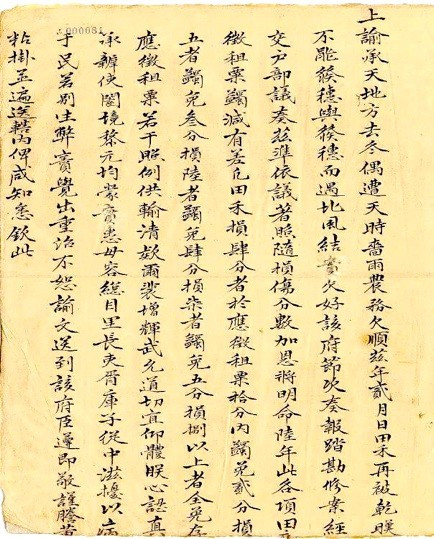 上諭承天地方去冬偶遭天時啬雨農務欠順茲年貳月日田禾再被乾暵
不能發穗與發穗而遇北風結實欠好該府節次奏報踏勘修案經
交户部議奏茲準依議著照隨損傷分數加恩將明命陸年此各項田
徵租粟蠲減有差凡田禾損肆分者於應徵租粟拾分內蠲免貳分損
五者蠲免叁分損陸者蠲免肆分損柒者蠲免五分損捌以上者全免存
應徵租粟若干照例供輸清欵爾裴增輝武允道切宜仰體朕心認真
承辦使闔境黎元均蒙實惠毋容總目里長吏胥庫子從中滋擾以病
于民若別生弊竇覺出重治不恕諭文送到該府臣遵即敬謹謄黃
粘掛並遍送轄內俾咸知悉欽此
000081